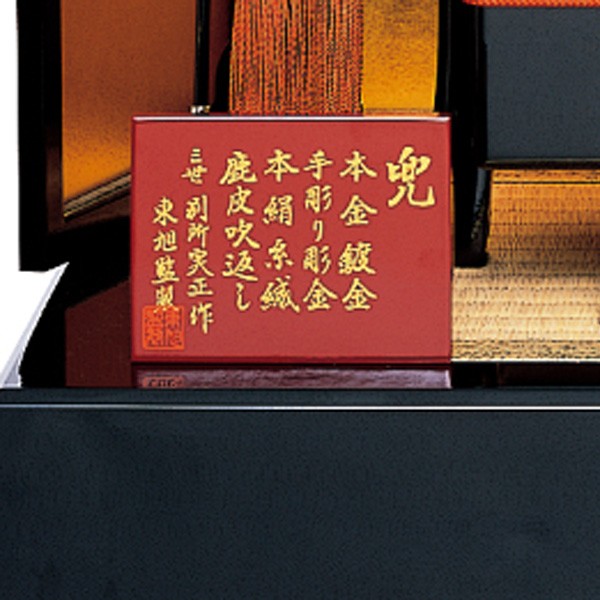 兜
本金鍍金
手彫り彫金
本絹糸縅
鹿皮吹返し
三世 別所実正作
東旭監製